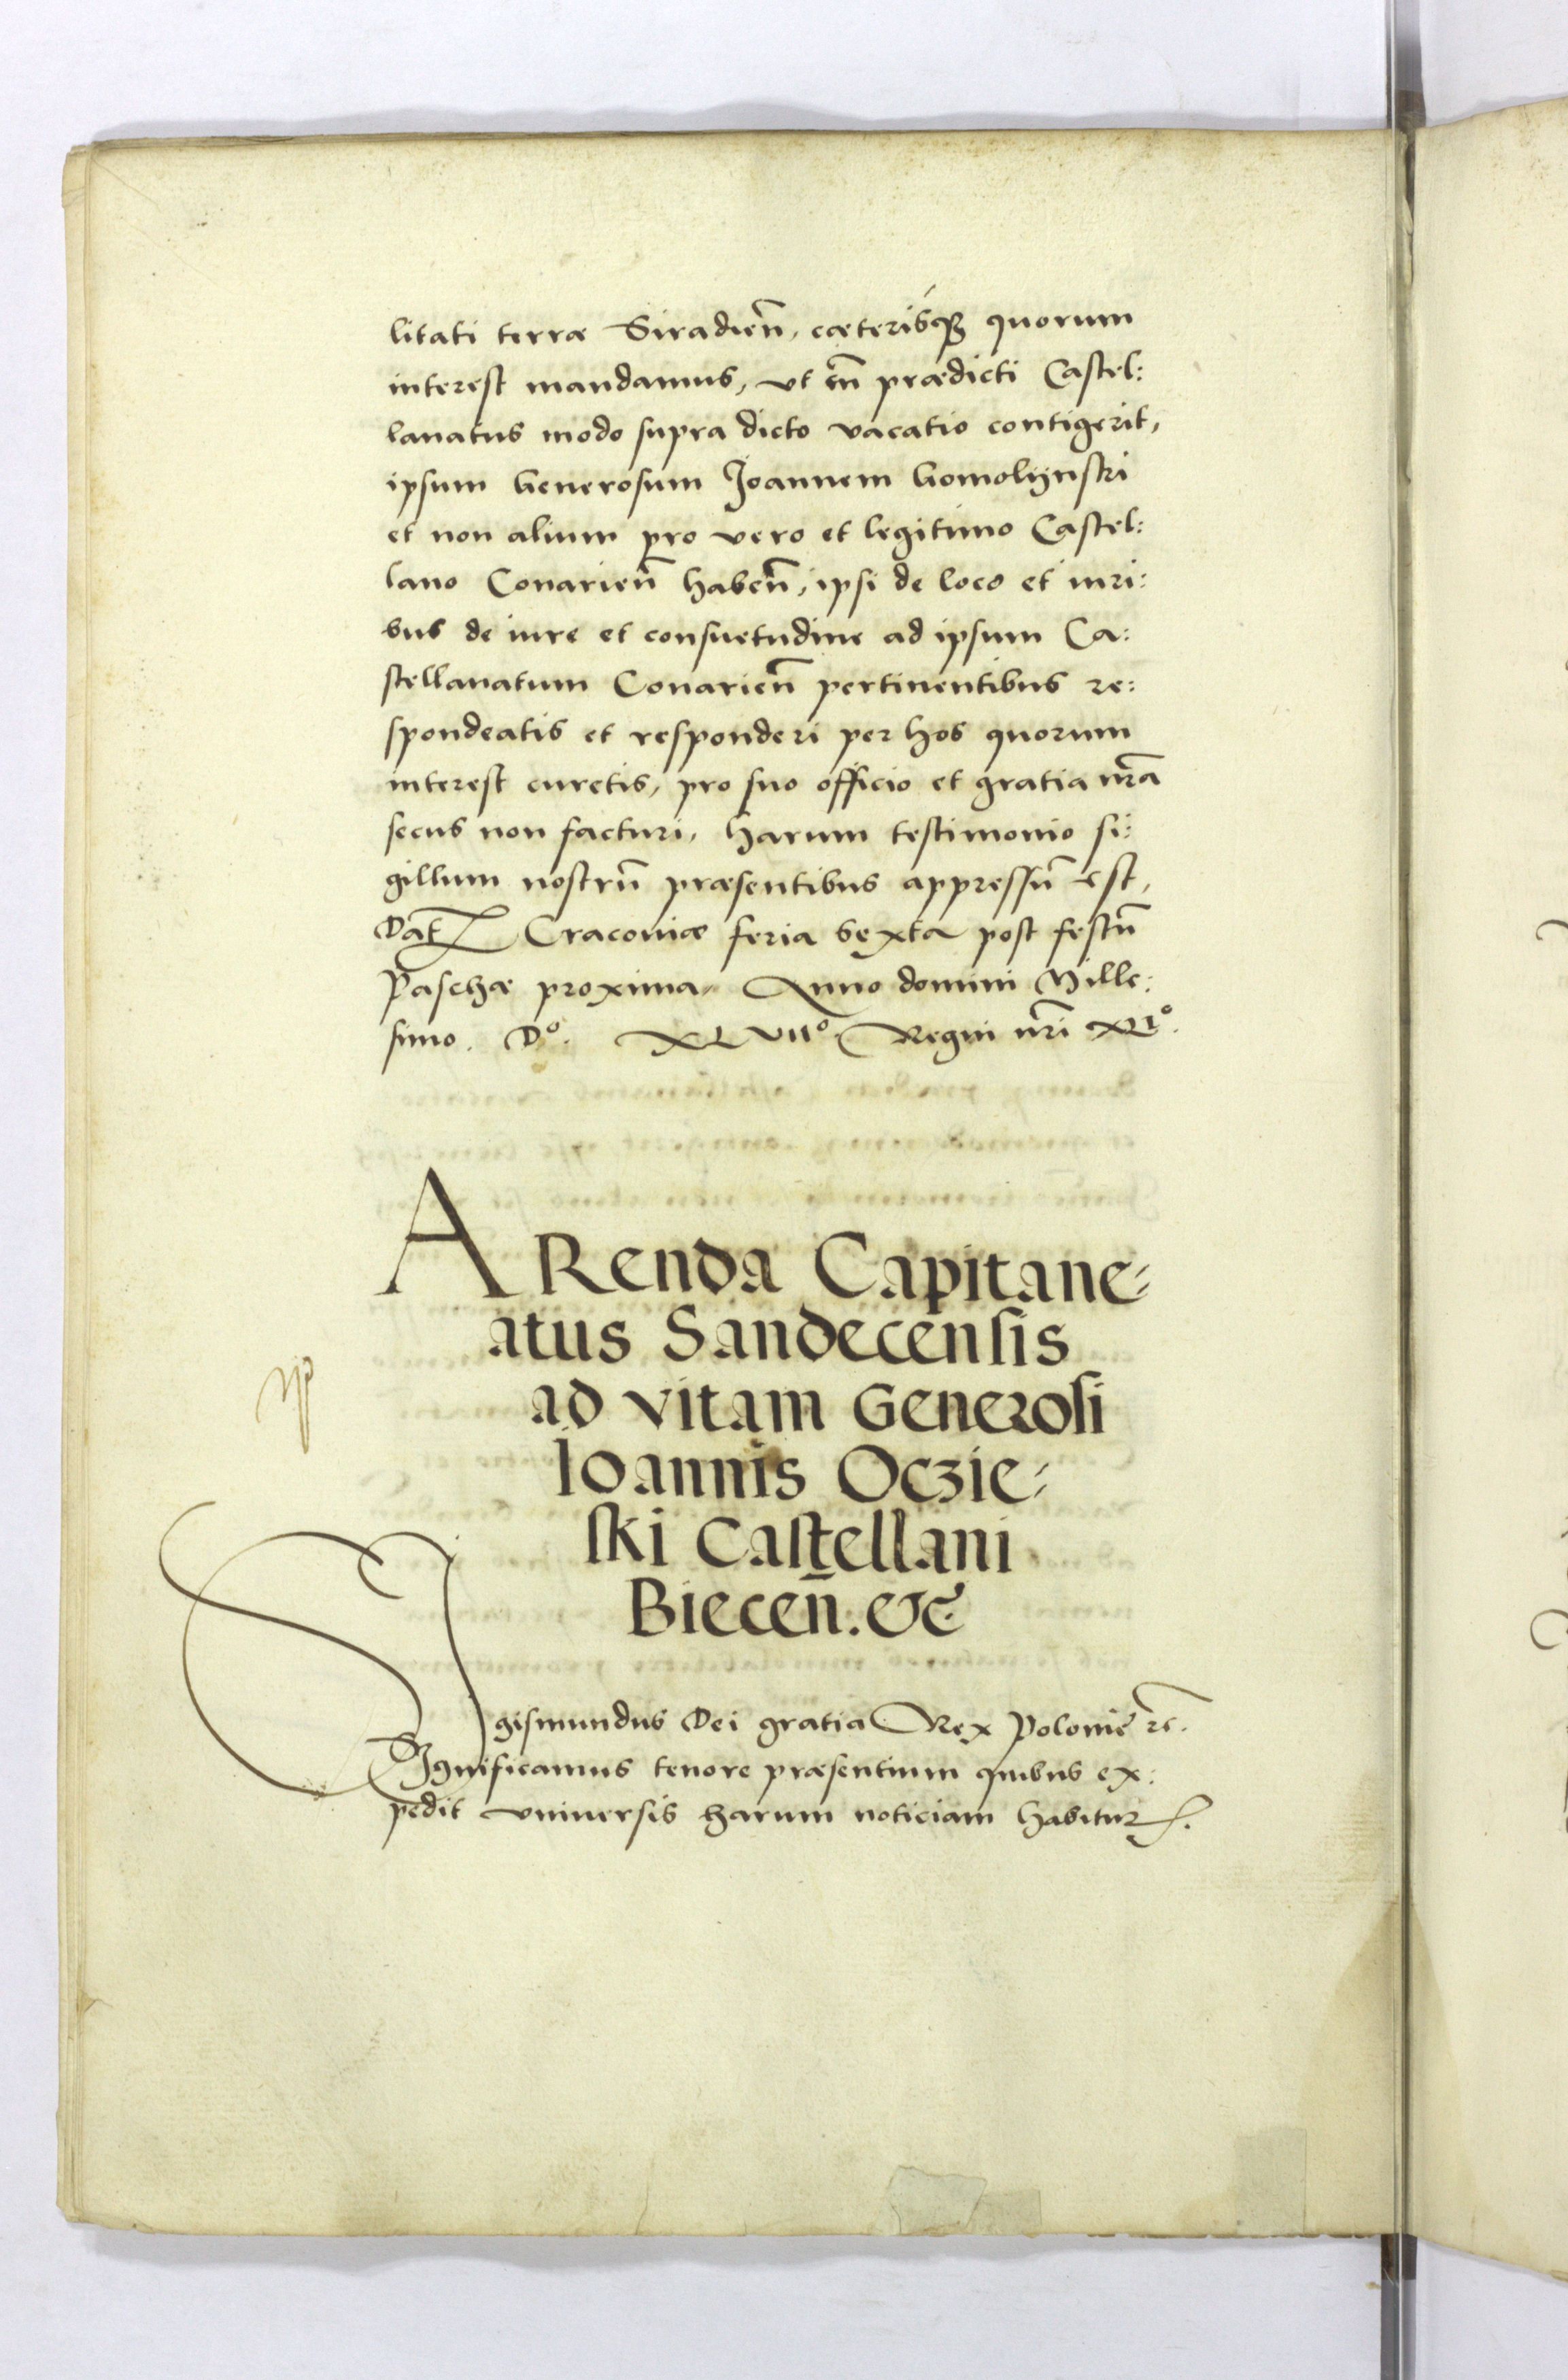 litati terræ Siradieñ, cæterisq₃ quorum
interest mandamus, vt cũ prædicti Castel:
lanatus modo supra dicto vacatio contigerit,
ipsum Generosum Joannem Gomolÿnski
et non alium pro vero et legitimo Castel:
lano Conarieñ habeñ, ipsi de loco et iuri:
bus de iure et consuetudine ad ipsum Ca:
stellanatum Conarieñ pertinentibus re:
spondeatis et responderi per hos quorum
interest curetis, pro suo officio et gratia nr̃a
secus non facturi, harum testimonio si:
gillum nostrũ præsentibus appressũ est,
Dat̃ Cracoviæ feria sexta post festũ
Paschæ proxima Anno domini Mille:
simo. Dº. XLVIIº. Regni nr̃i XLIº.
ARenda Capitane-
atus Sandecensis
ad vitam Generosi
Ioannis Oczie-
ski Castellani
Bieceñ. etc
Sigismundus Dei gratia Rex Polonie ꝛc.
Significamus tenore præsentium quibus ex:
pedit vniversis harum noticiam habitur.